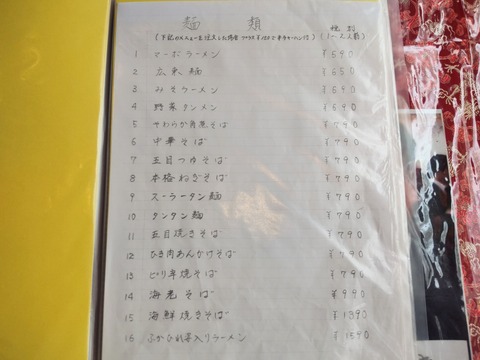 麺 類
種別
(下記のメニューを注文した場合 プラス
(1~2人前)
1 マーボラーメン ¥590
2 広東麺 ¥650
3 みそラーメン ¥690
4 野菜タンメン ¥690
5 やわらか角煮そば ¥790
6 中華そば ¥790
7 五目つゆそば ¥790
8 本格ねぎそば ¥790
9 スーラータン麺 ¥790
10 タンタン麺 ¥790
11 五目焼きそば ¥790
12 ひき肉あんかけそば ¥790
13 ピリ辛焼そば ¥790
14 海老そば ¥990
15 海鮮焼きそば ¥1390
16 ふかひれ入りラーメン ¥1590